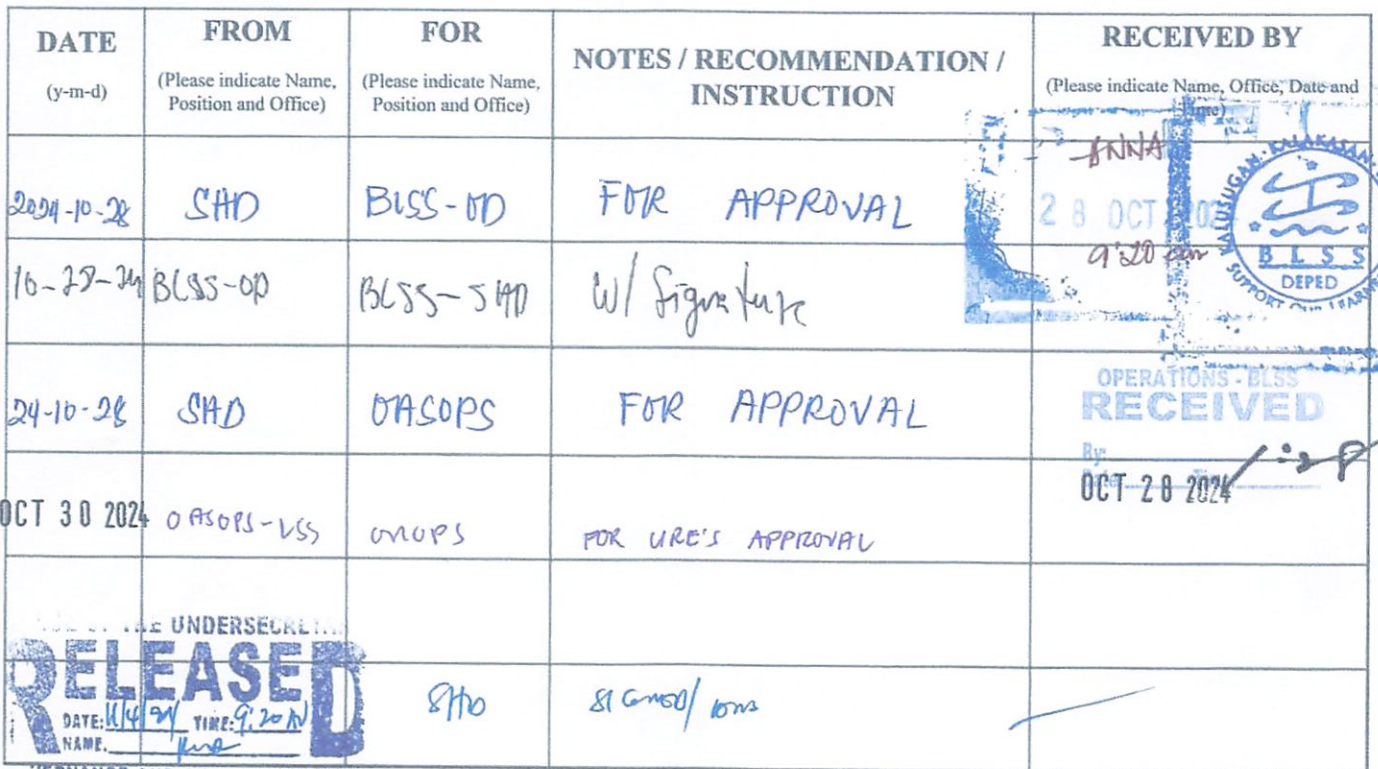 DATE
(y-m-d)
FROM
(Please indicate Name,
Position and Office)
FOR
(Please indicate Name,
Position and Office)
NOTES / RECOMMENDATION /
INSTRUCTION
RECEIVED BY
(Please indicate Name, Office, Date and
Time)
2024-10-28 SHD BLSS-OD FOR APPROVAL
ANNA
28 OCT 2024
9:20 am
KALUSUGAN · KALAKASAN
BLSS
DEPED
SUPPORT OUR LEARNE
10-28-24 BLSS-OD BLSS-SHD W/ Signature
24-10-28 SHD OASOPS FOR APPROVAL
OPERATIONS - BLSS
RECEIVED
By:
Date: Time
OCT 28 2024
OCT 30 2024 OASOPS-LSS OUOPS FOR URE'S APPROVAL
THE UNDERSECRETA
RELEASED
DATE: 11/4/24 TIME: 9:20 AM
NAME.
SHD SIGNED/